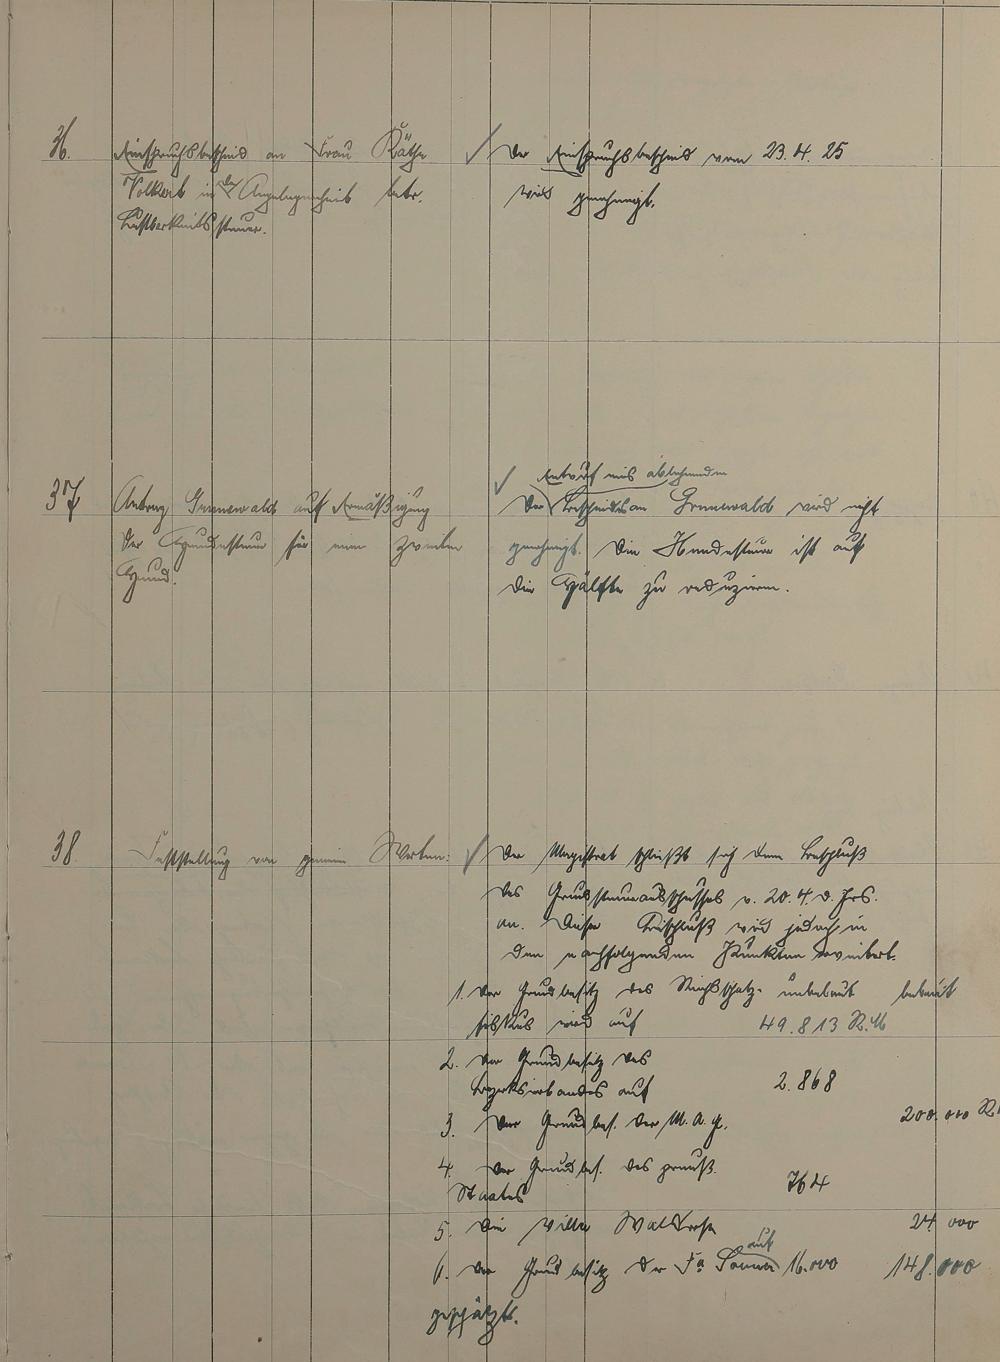 36.
Einspruchsbescheid an Frau Käthe
Volkert in der Angelegenheit betr.
Lustbarkeitssteuer.
✓ Der Einspruchsbescheid vom 23.4.25
wird genehmigt.
37
Antrag Grunewald auf Ermäßigung
der Hundesteuer für einen zweiten
Hund.
✓ Entwurf eines ablehnenden
Der Bescheides an Grunewald wird nicht
genehmigt. Die Hundesteuer ist auf
die Hälfte zu reduzieren.
38
Feststellung von gemeinen Werten:
✓ Der Magistrat schließt sich dem Beschluß
des Grundsteuerausschusses v. 20.4. d. Jrs.
an. Dieser Beschluß wird jedoch in
den nachfolgenden Punkten erweitert.
1. Der Grundbesitz des Reichsschatz- unbebaut bebaut
fiskus wird auf 49.813 R.M
2. der Grundbesitz des
Bezirksverbandes auf 2.868
3. der Grundbes. der M.A.G. 200.000 R.
4. der Grundbes. des preuß.
Staates 764
5. die Villa Waldrose 24 000
6. der Grundbesitz der Fa auf 16.000 148.000
geschätzt.